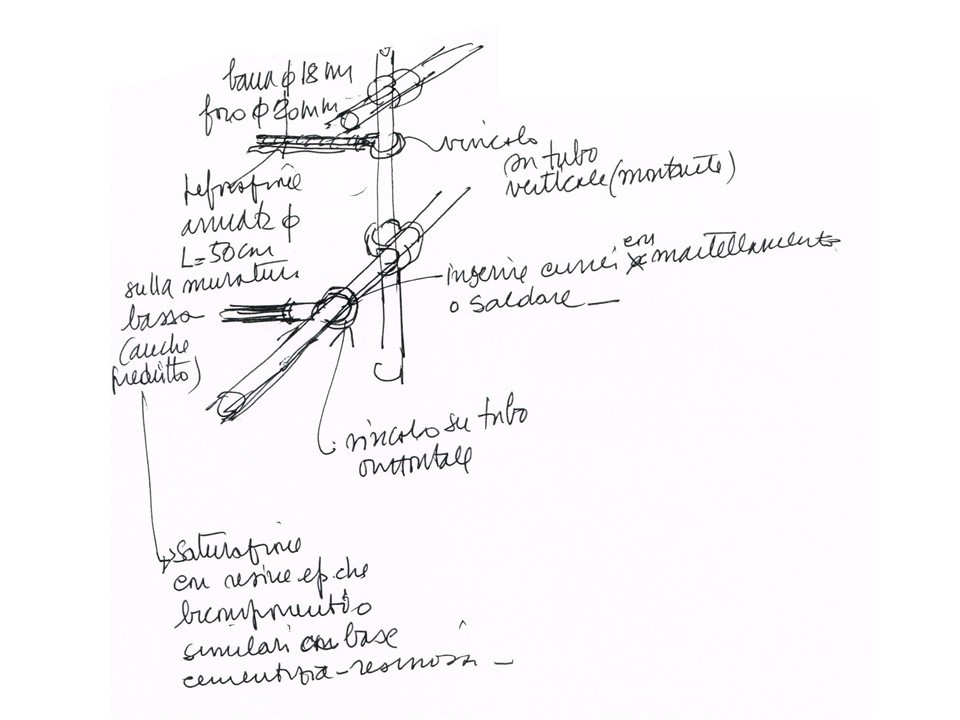 barra ϕ 18 mm
foro ϕ 20 mm
vincolo
su tubo
verticale (montante)
Perforazione
armata ϕ
L=50cm
sulla muratura
bassa
(anche
inserire cunei con martellamento
o saldare —
vincolo su tubo
orizzontale
saturazione
con resine ep.che
bicomponenti o
similari con base
cementizia-resinosa —